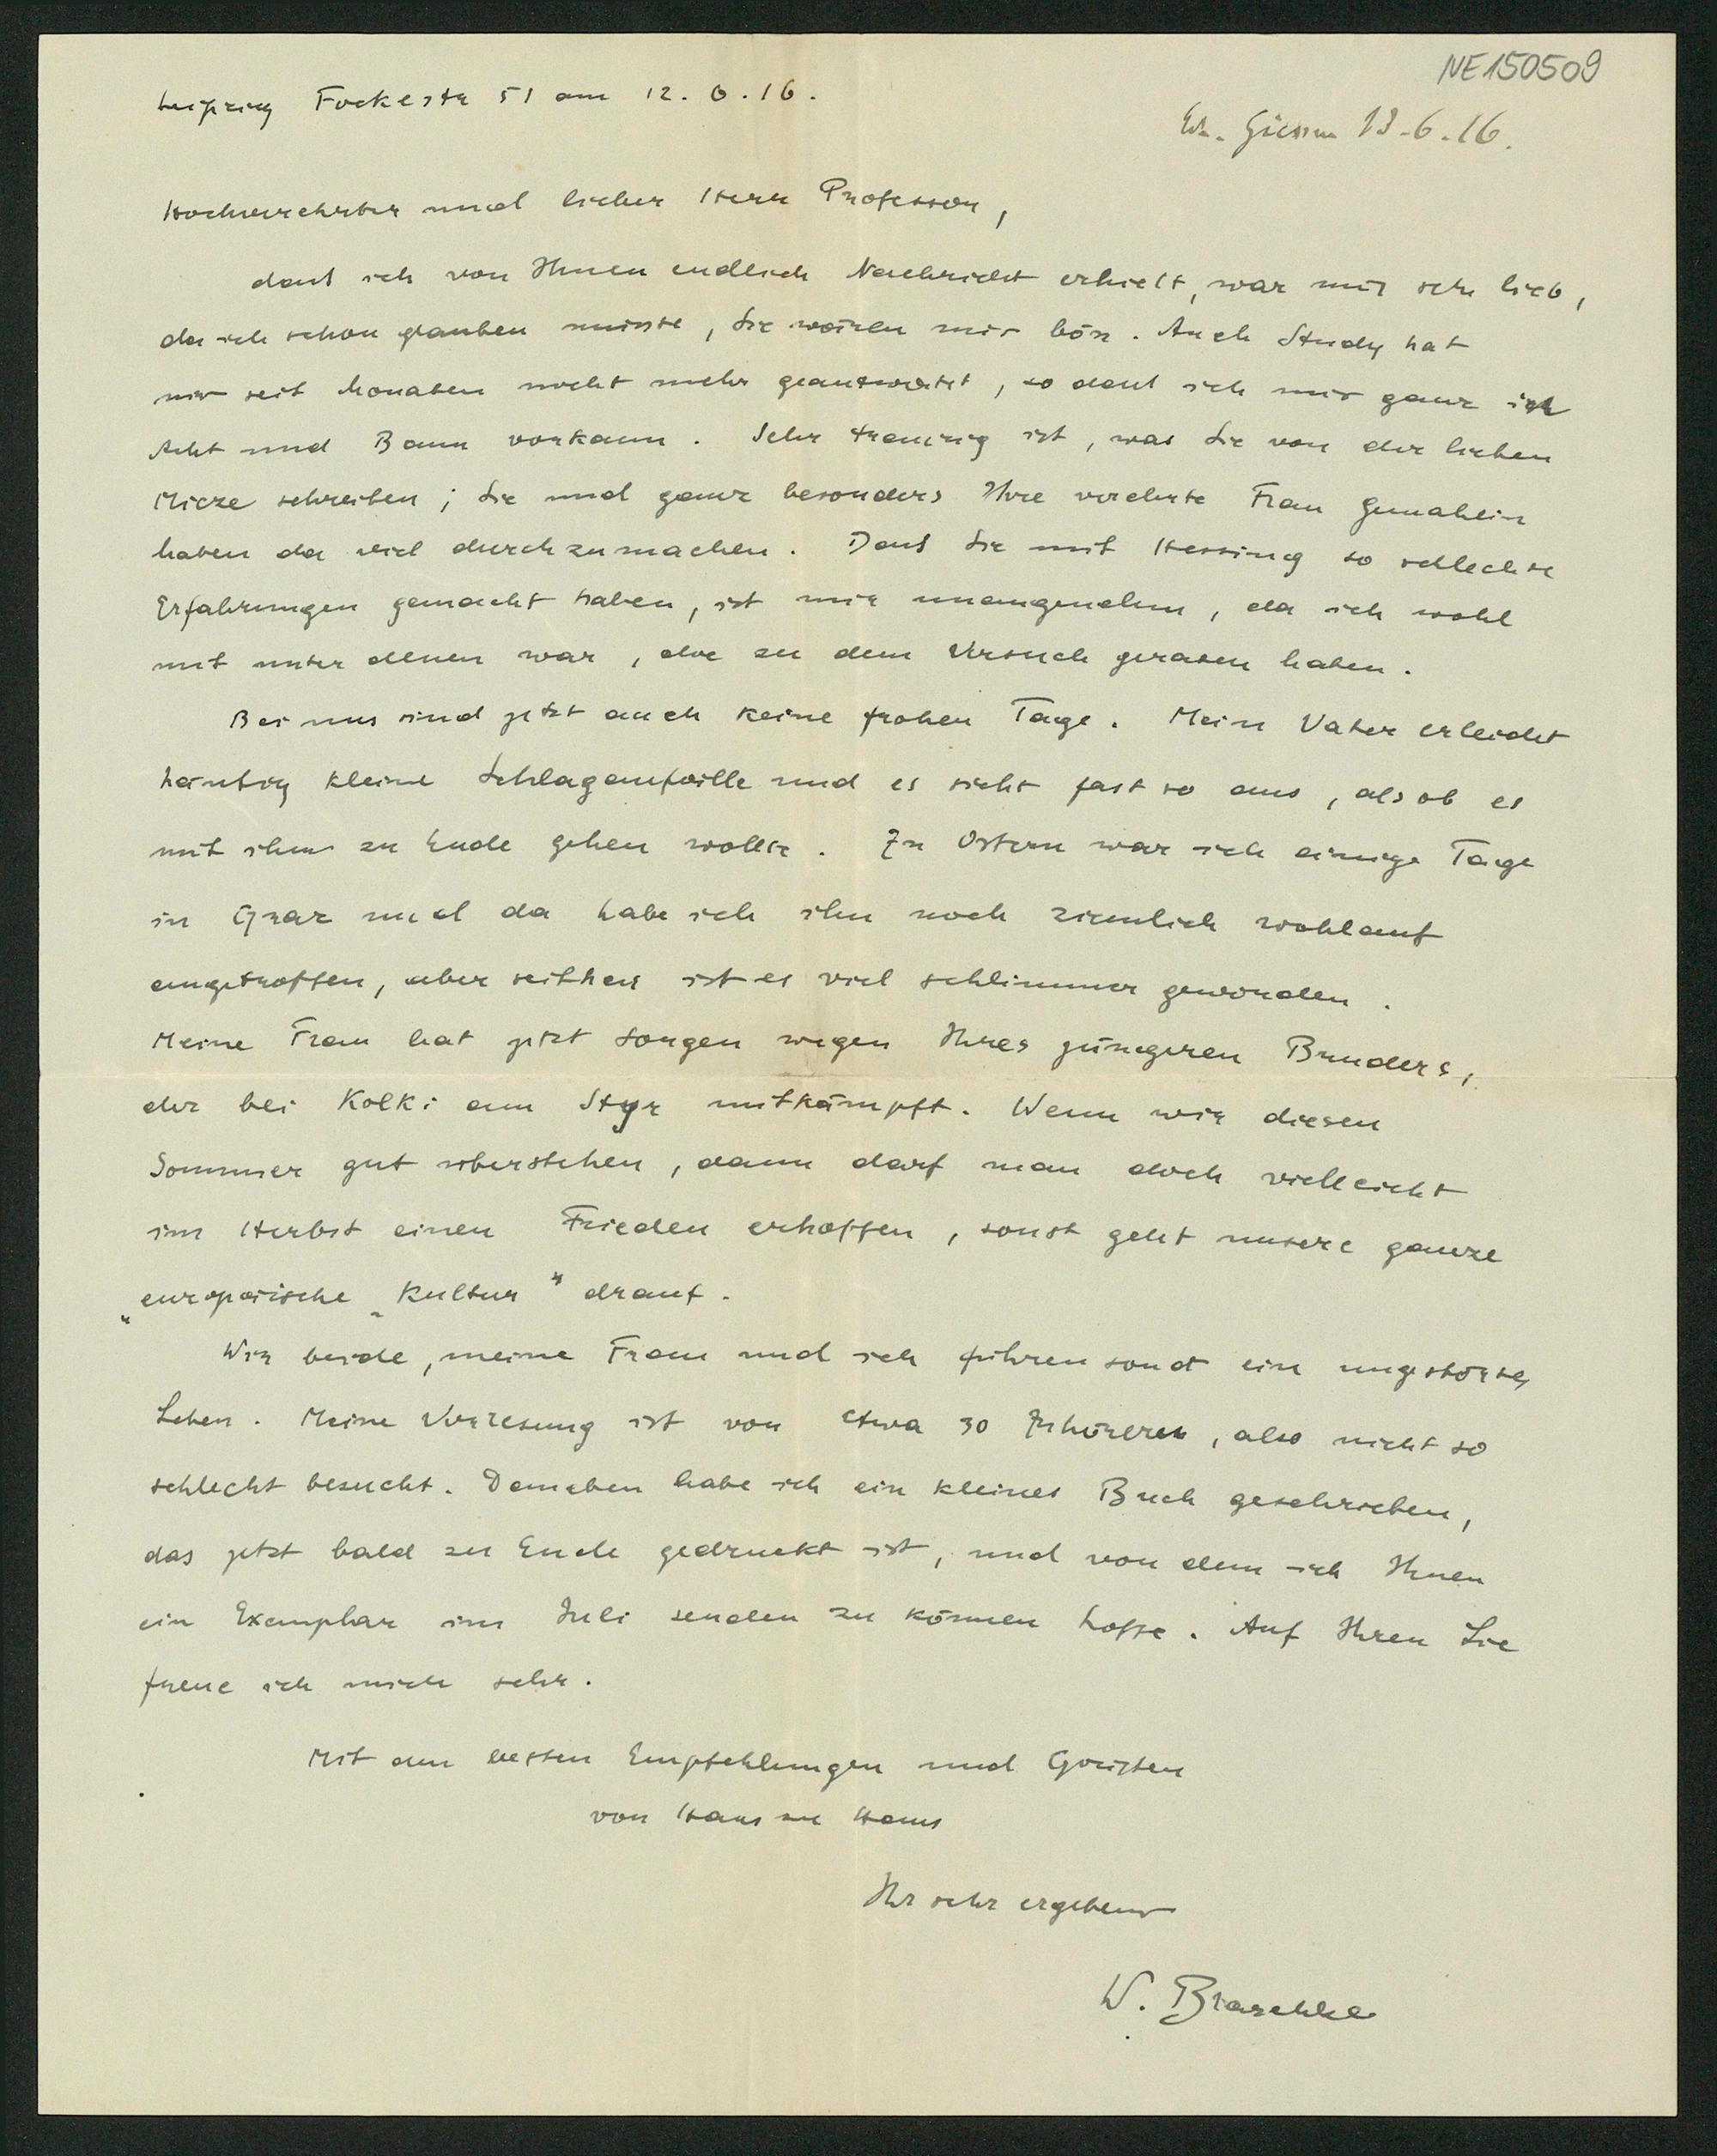 NE150509
Leipzig Fockestr 51 am 12. 6. 16.
Giessen 13-6.16.
Hochverehrter und lieber Herr Professor,
daß ich von Ihnen endlich Nachricht erhielt, war mir sehr lieb,
da ich schon glauben musste, Sie wären mir bös. Auch Study hat
mir seit Monaten nicht mehr geantwortet, so daß ich mir ganz in
Acht und Bann vorkam. Sehr traurig ist, was Sie von der lieben
Mieze schreiben; Sie und ganz besonders Ihre verehrte Frau Gemahlin
haben da viel durchzumachen. Daß Sie mit Hessing so schlechte
Erfahrungen gemacht haben, ist mir unangenehm, da ich wohl
mit unter denen war, die zu dem Versuch geraten haben.
Bei uns sind jetzt auch keine frohen Tage. Mein Vater erleidet
häufig kleine Schlaganfälle und es sieht fast so aus, als ob es
mit ihm zu Ende gehen wollte. Zu Ostern war ich einige Tage
in Graz und da habe ich ihn noch ziemlich wohlauf
angetroffen, aber seither ist es viel schlimmer geworden.
Meine Frau hat jetzt Sorgen wegen Ihres jüngeren Bruders,
der bei Kolki am Styr mitkämpft. Wenn wir diesen
Sommer gut überstehen, dann darf man doch vielleicht
im Herbst einen Frieden erhoffen, sonst geht unsere ganze
„europäische „Kultur" drauf.
Wir beide, meine Frau und ich führen sonst ein ungestörtes
Leben. Meine Vorlesung ist von etwa 30 Zuhörern, also nicht so
schlecht besucht. Daneben habe ich ein kleines Buch geschrieben,
das jetzt bald zu Ende gedruckt ist, und von dem ich Ihnen
ein Exemplar im Juli senden zu können hoffe. Auf Ihren Lie
freue ich mich sehr.
Mit den besten Empfehlungen und Grüßen
von Haus zu Haus
Ihr sehr ergebener
W. Blaschke